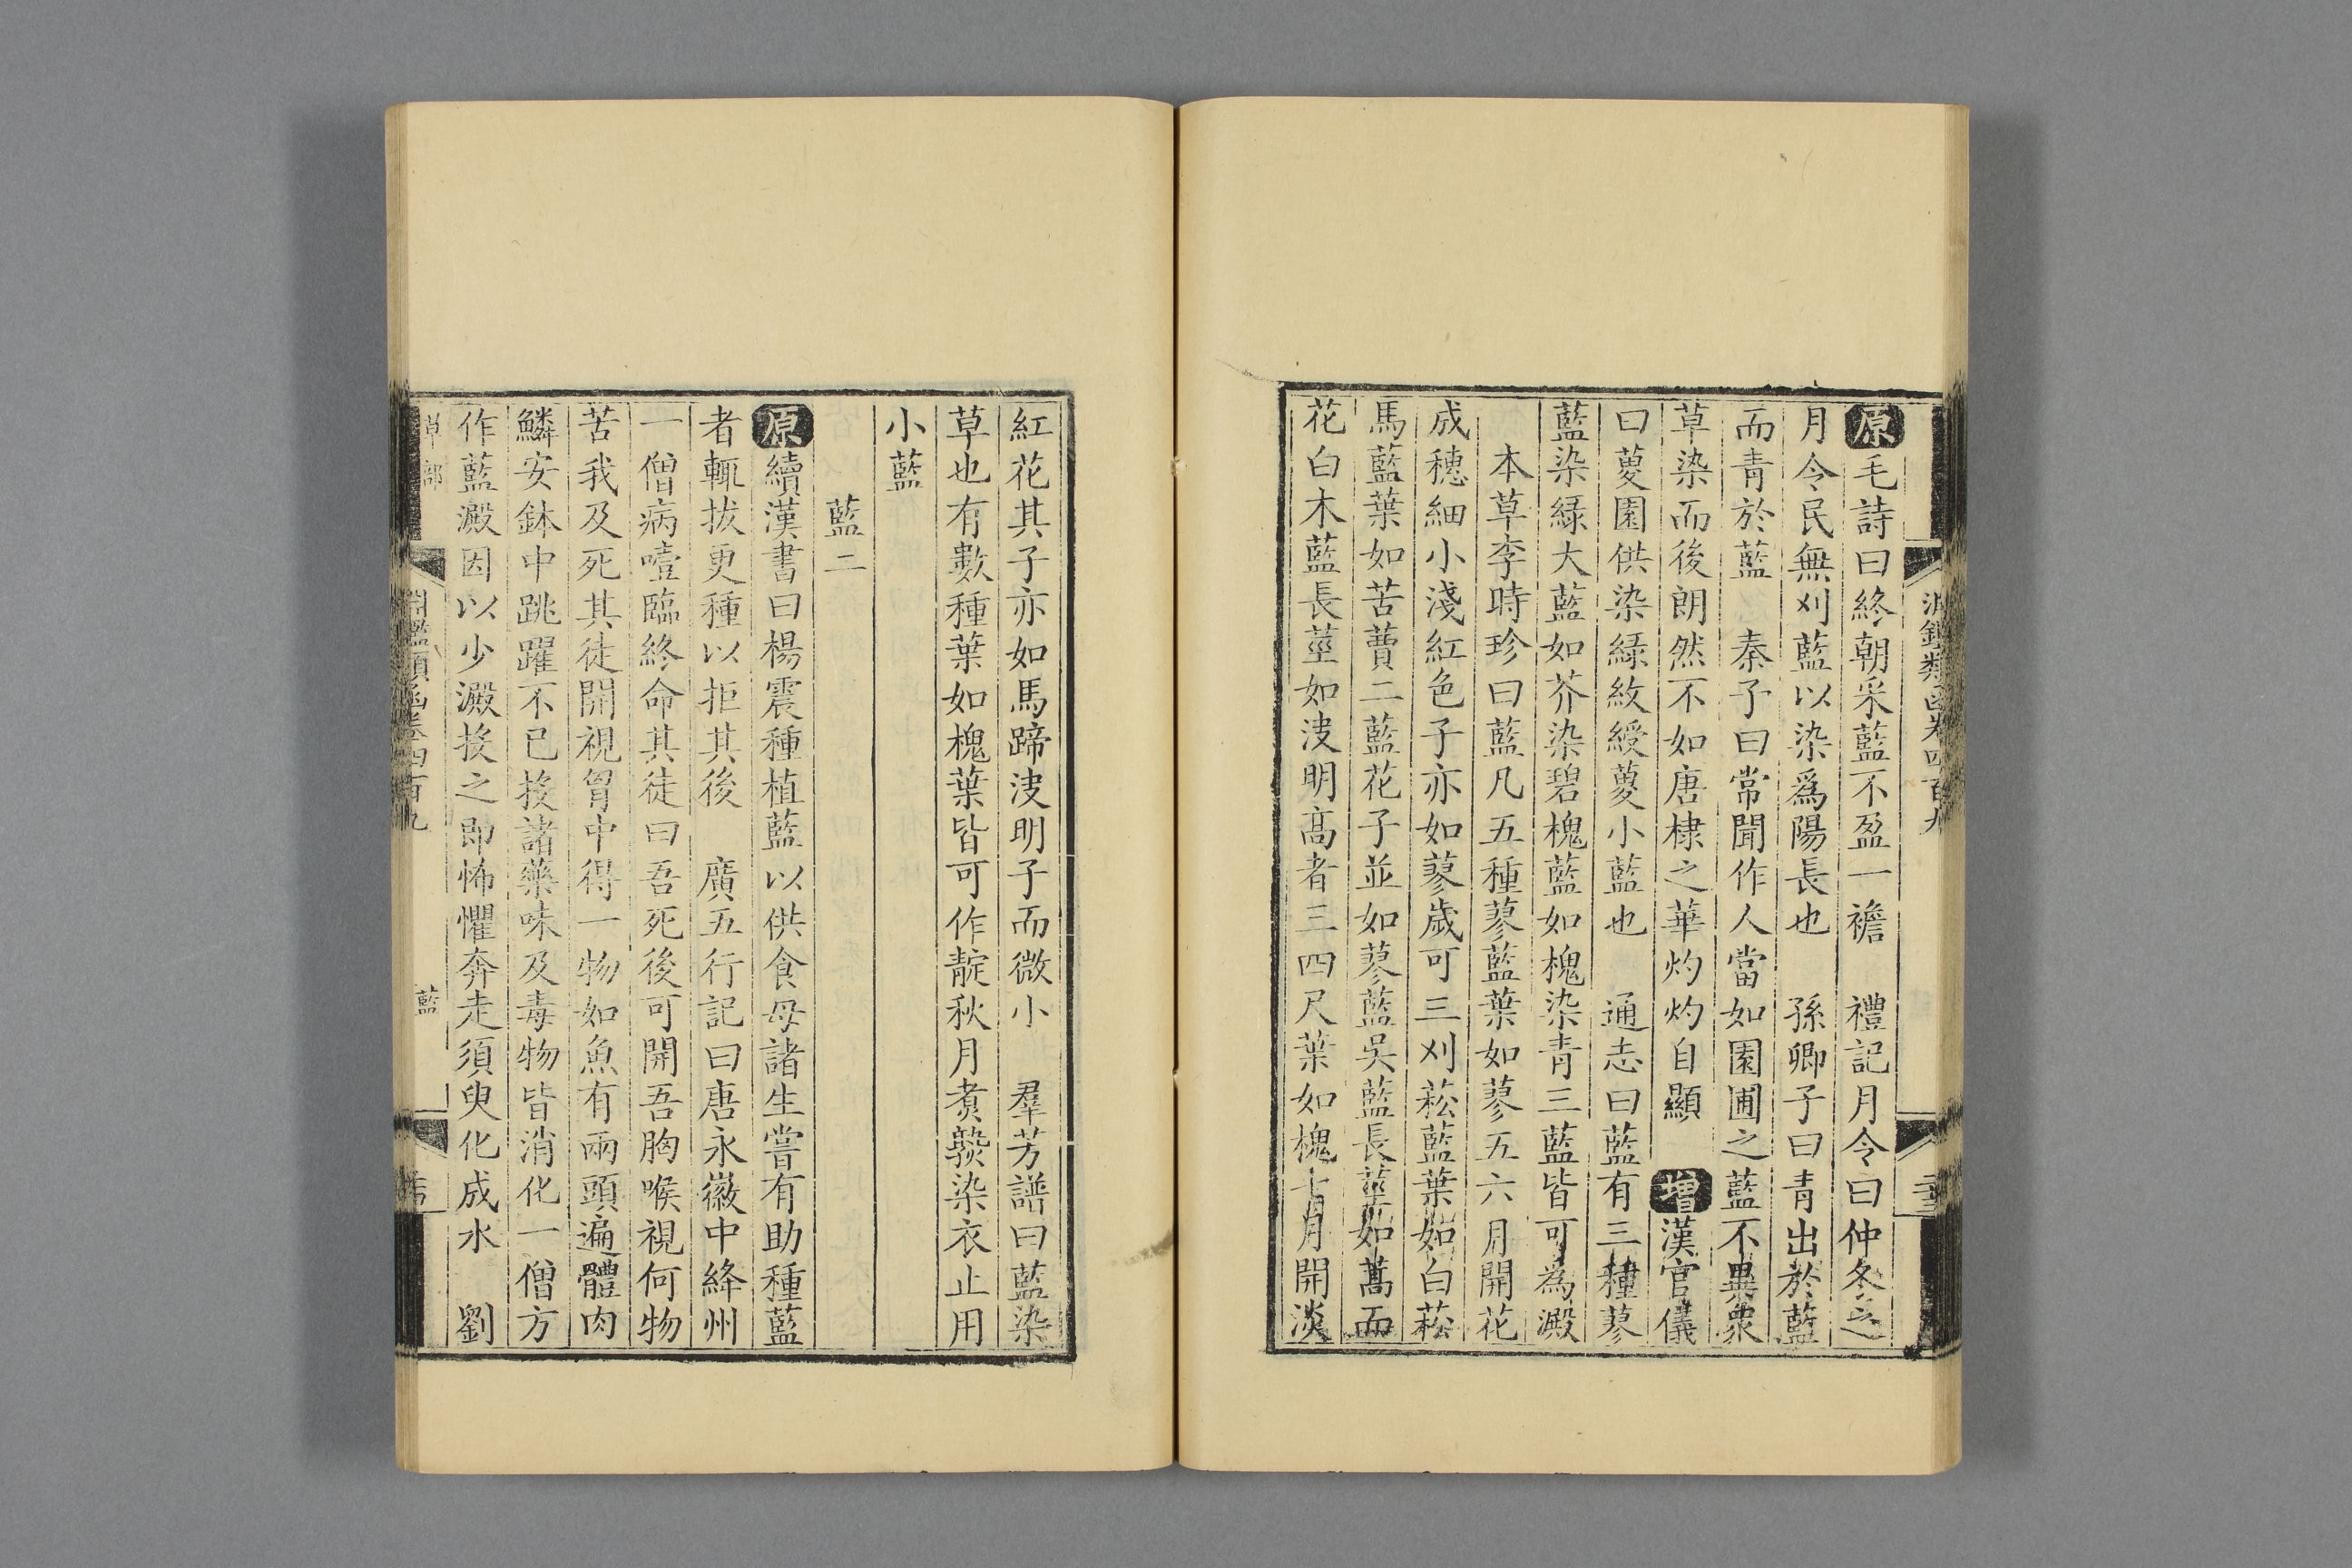 淵鑑類函卷四百九
原毛詩曰終朝采藍不盈一襜　禮記月令曰仲冬之
月令民無刈藍以染爲陽長也　孫卿子曰青出於藍
而青於藍　秦子曰常聞作人當如園圃之藍不異衆
草染而後朗然不如唐棣之華灼灼自顯　增漢官儀
曰蔓園供染綠紋綬蔓小藍也　通志曰藍有三種蓼
藍染綠大藍如芥染碧槐藍如槐染青三藍皆可為澱
本草李時珍曰藍凡五種蓼藍葉如蓼五六月開花
成穗細小淺紅色子亦如蓼歲可三刈菘藍葉如白菘
馬藍葉如苦蕒二藍花子並如蓼藍吳藍長莖如蒿而
花白木藍長莖如決明高者三四尺葉如槐七月開淡
紅花其子亦如馬蹄決明子而微小　羣芳譜曰藍染
草也有數種葉如槐葉皆可作靛秋月煑𤍠染衣止用
小藍
藍二
原續漢書曰楊震種植藍以供食母諸生嘗有助種藍
者輒拔更種以拒其後　廣五行記曰唐永徽中絳州
一僧病噎臨終命其徒曰吾死後可開吾胸喉視何物
苦我及死其徒開視胷中得一物如魚有兩頭遍體肉
鱗安鉢中跳躍不已投諸藥味及毒物皆消化一僧方
作藍澱因以少澱投之即怖懼奔走須臾化成水　劉
草部
淵鑑類函卷四百九
藍